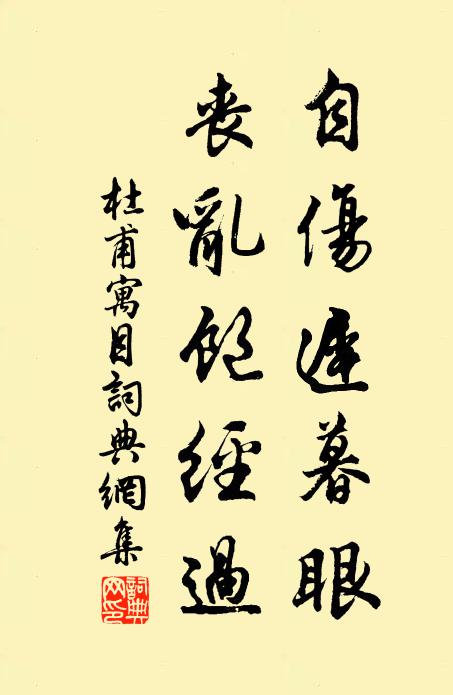 自傷遲暮眼
喪亂飽經過
杜甫寓目詞典網集
詞典網印